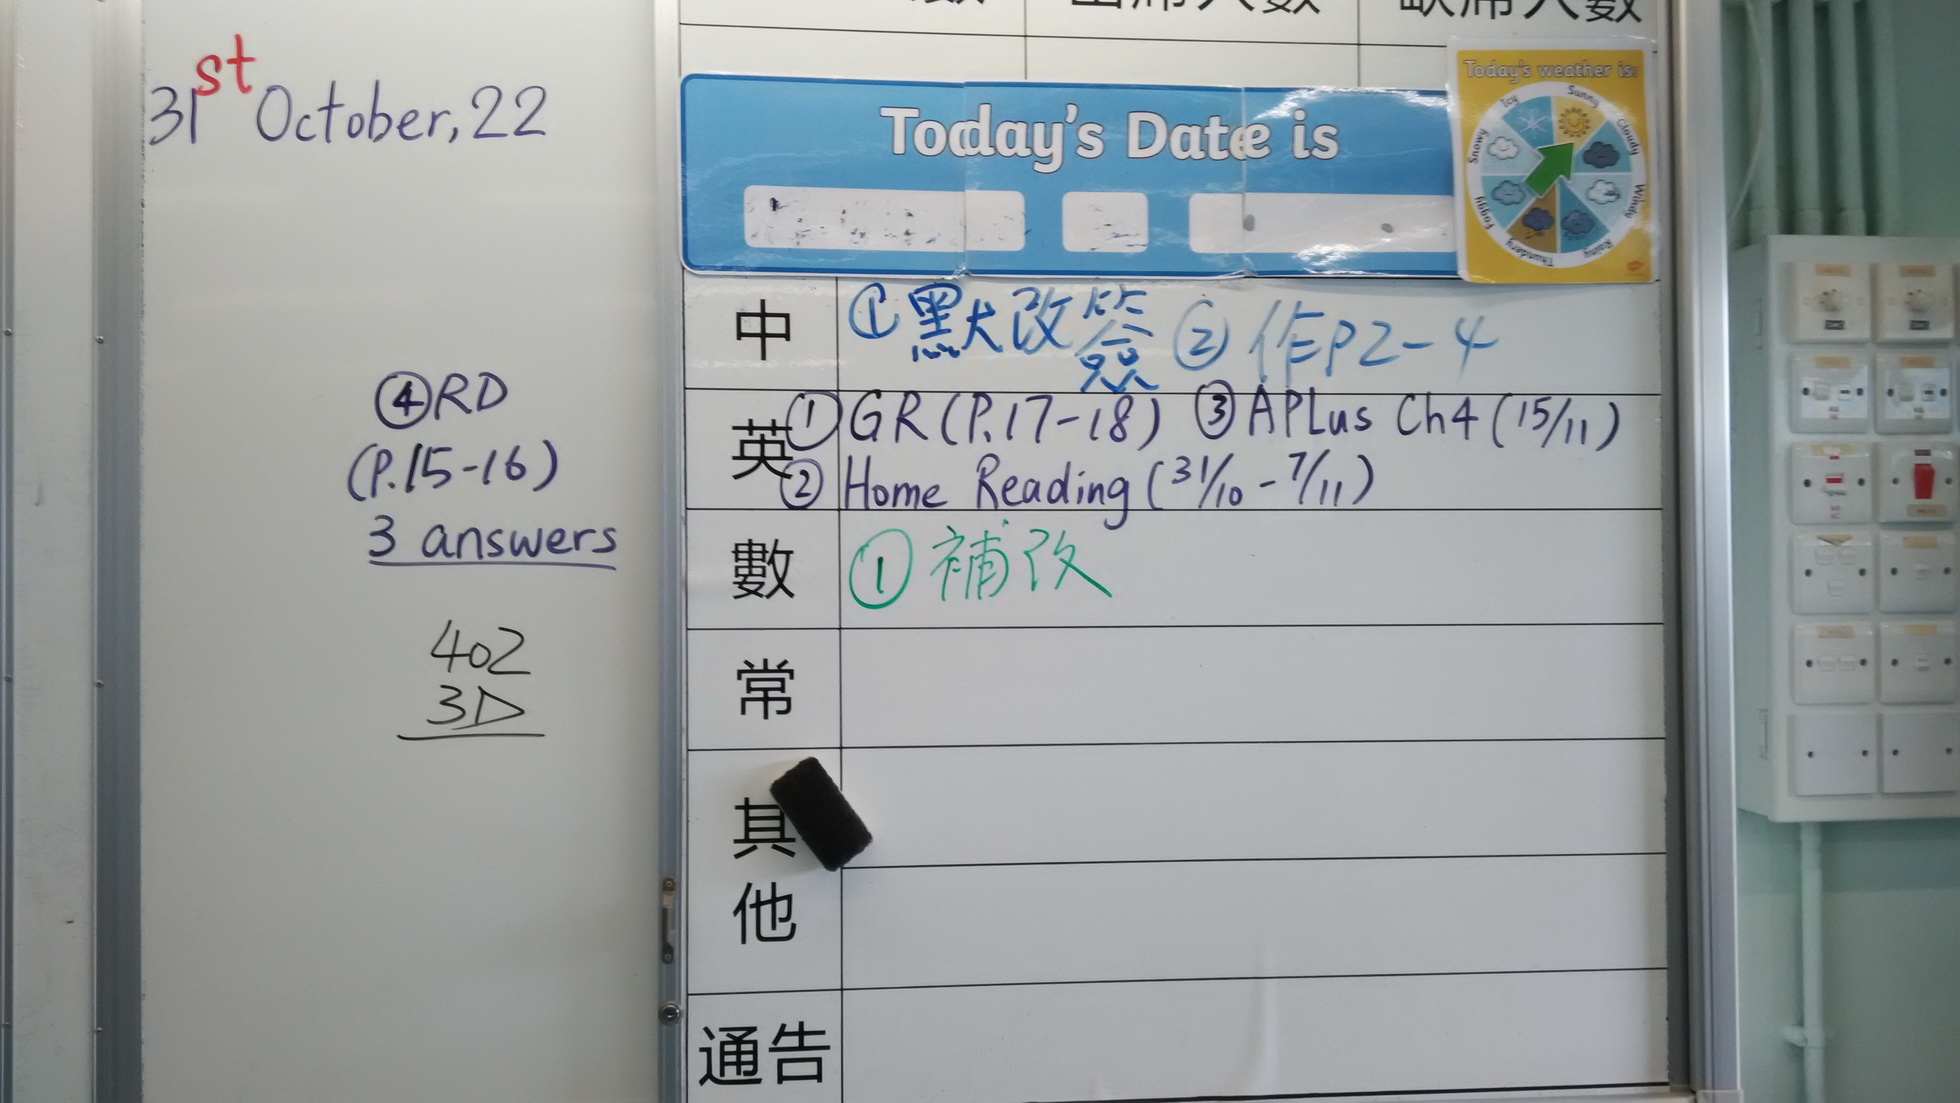 31st October,22
④RD
(P.15-16)
3 answers
402
3D
出席人數
缺席人數
Today's Date is
Today's weather is:
Sunny
Cloudy
Windy
Rainy
Thundery
Foggy
Snowy
Icy
中 ①默改簽 ②作P2-4
英 ①GR(P.17-18) ③APLus Ch4(15/11)
②Home Reading(31/10-7/11)
數 ①補改
常
其
他
通告